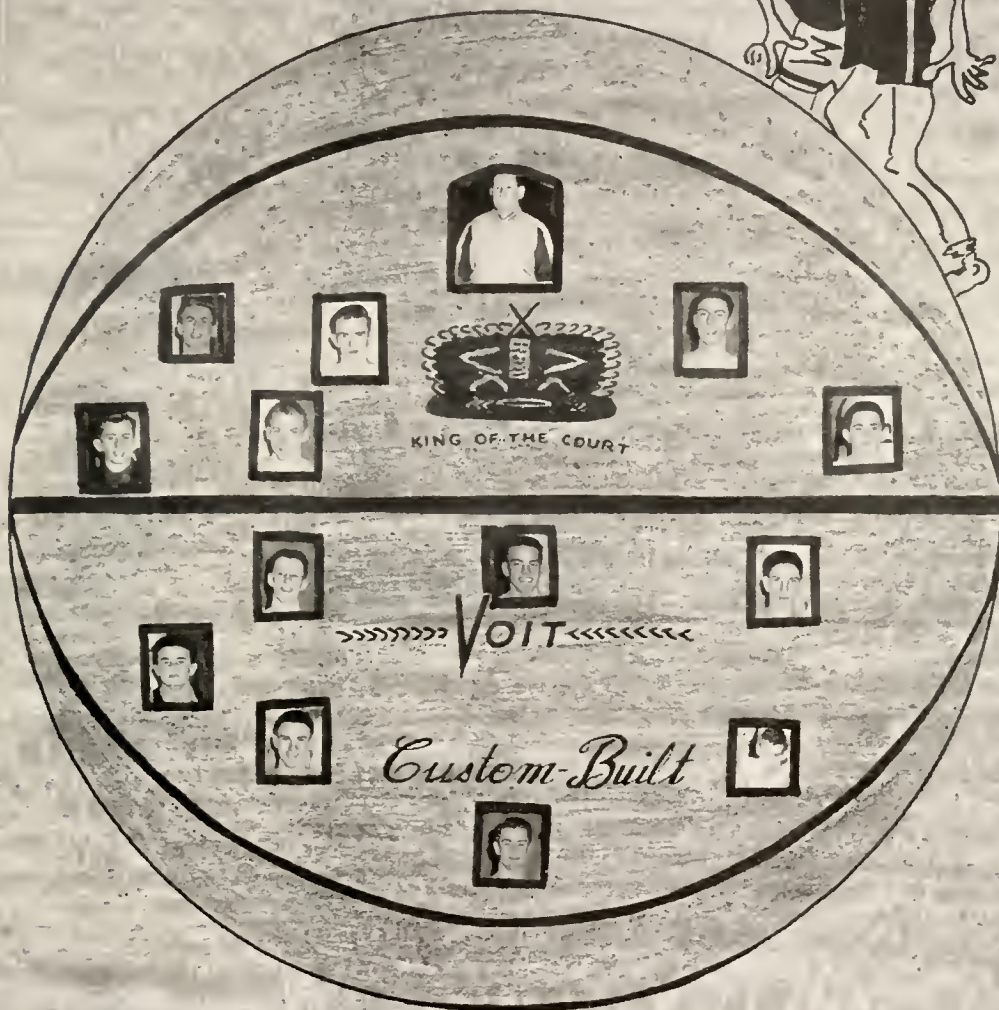 KING OF THE COURT
VOIT
Custom-Built